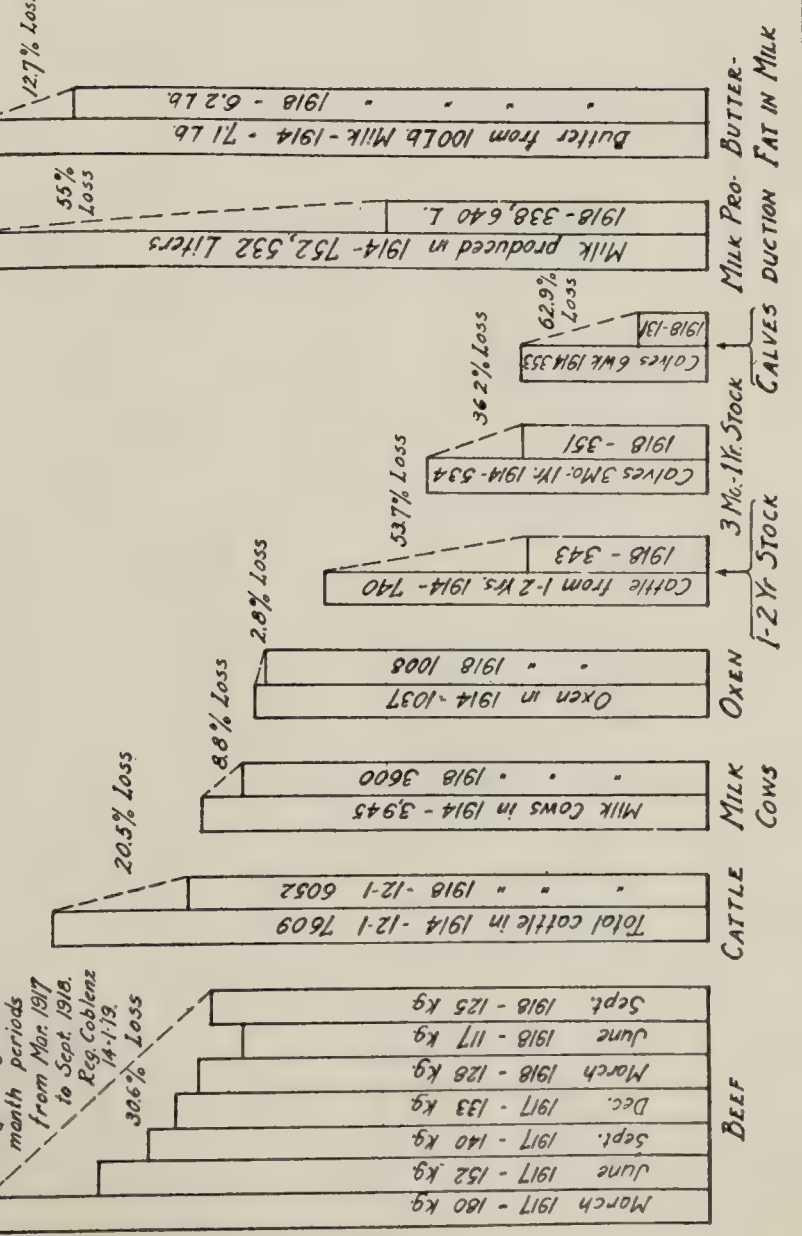 month periods
from Mar. 1917
to Sept. 1918.
Reg. Coblenz
14-1-19.
30.6% Loss
March 1917 - 180 kg.
June 1917 - 152 kg.
Sept. 1917 - 140 kg
Dec. 1917 - 133 kg
March 1918 - 128 kg
June 1918 - 117 kg
Sept. 1918 - 125 kg
BEEF
20.5% Loss
Total cattle in 1914 - 12-1 7609
" " " 1918 - 12-1 6052
CATTLE
8.8% Loss
Milk Cows in 1914 - 3,945
" " " 1918 3600
MILK
COWS
2.8% Loss
Oxen in 1914 - 1037
" " 1918 1008
OXEN
53.7% Loss
Cattle from 1-2 Yrs. 1914 - 740
1918 - 343
1-2 Yr STOCK
36 2% Loss
Calves 3 Mo.- 1Yr. 1914 - 534
1918 - 351
3 Mo.-1Yr. STOCK
62.9%
Loss
Calves 6 Wk 1914 353
1918-131
CALVES
55%
Loss
Milk produced in 1914 - 752,532 Liters
1918 - 338,640 L.
MILK PRO-
DUCTION
12.7% Loss
Butter from 100 Lb. Milk - 1914 - 7.1 Lb.
" " " " 1918 - 6.2 Lb.
BUTTER-
FAT IN MILK